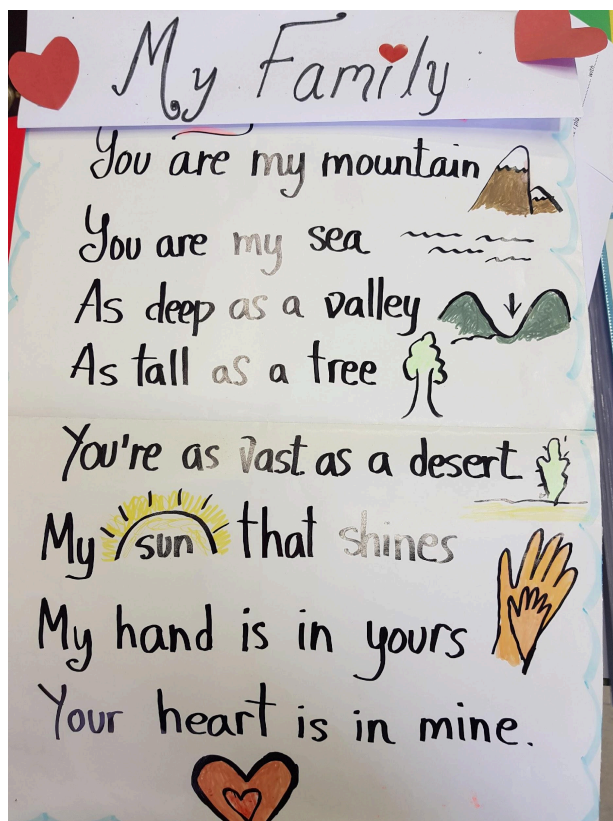 My Family
You are my mountain
You are my sea
As deep as a valley
As tall as a tree
You're as vast as a desert
My sun that shines
My hand is in yours
Your heart is in mine.